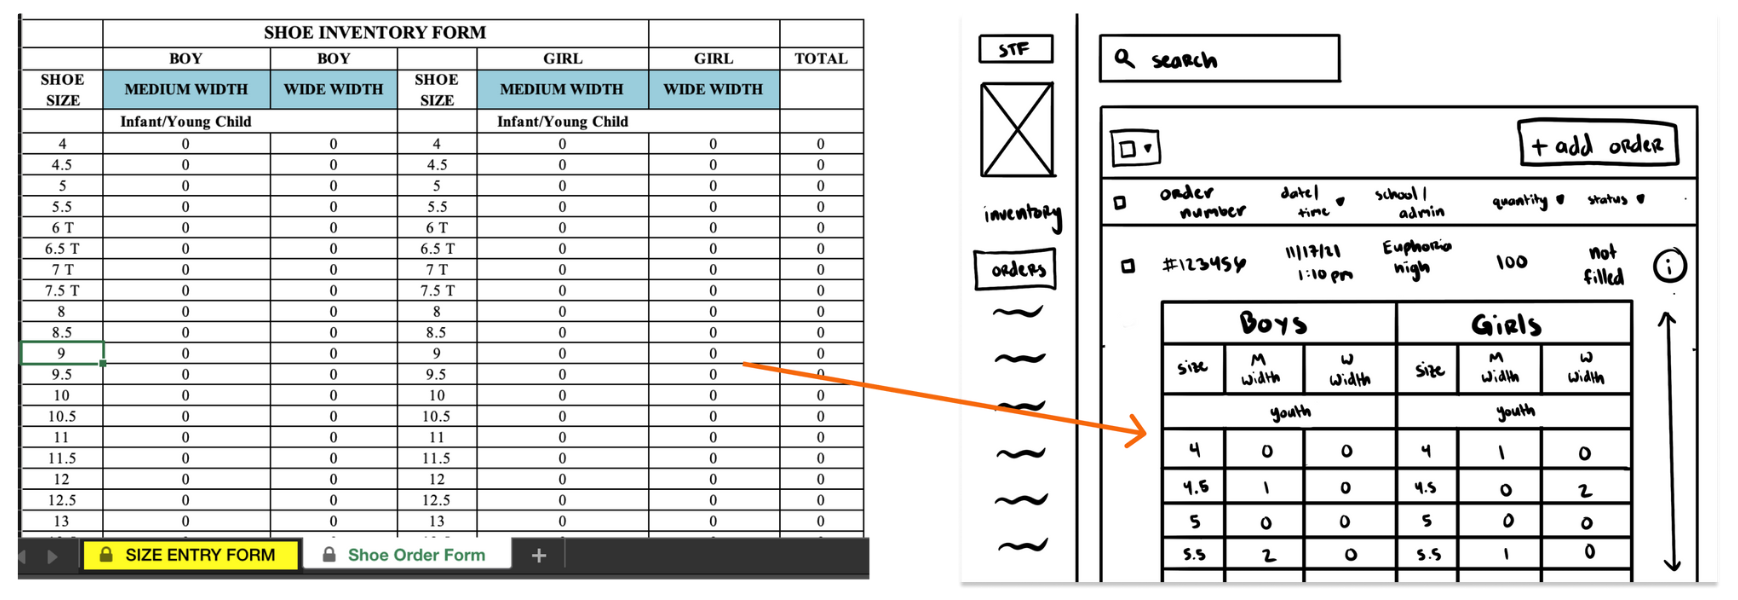 SHOE INVENTORY FORM
BOY BOY GIRL GIRL TOTAL
SHOE SIZE MEDIUM WIDTH WIDE WIDTH SHOE SIZE MEDIUM WIDTH WIDE WIDTH
Infant/Young Child Infant/Young Child
4 0 0 4 0 0 0
4.5 0 0 4.5 0 0 0
5 0 0 5 0 0 0
5.5 0 0 5.5 0 0 0
6 T 0 0 6 T 0 0 0
6.5 T 0 0 6.5 T 0 0 0
7 T 0 0 7 T 0 0 0
7.5 T 0 0 7.5 T 0 0 0
8 0 0 8 0 0 0
8.5 0 0 8.5 0 0 0
9 0 0 9 0 0 0
9.5 0 0 9.5 0 0 0
10 0 0 10 0 0 0
10.5 0 0 10.5 0 0 0
11 0 0 11 0 0 0
11.5 0 0 11.5 0 0 0
12 0 0 12 0 0 0
12.5 0 0 12.5 0 0 0
13 0 0 13 0 0 0
SIZE ENTRY FORM Shoe Order Form +
STF
inventory
orders
search
+ add order
order number date/ time school/ admin quantity status
#123456 11/17/21 1:10 pm Euphoria high 100 not filled i
Boys Girls
size M width W width size M width W width
youth youth
4 0 0 4 1 0
4.5 1 0 4.5 0 2
5 0 0 5 0 0
5.5 2 0 5.5 1 0